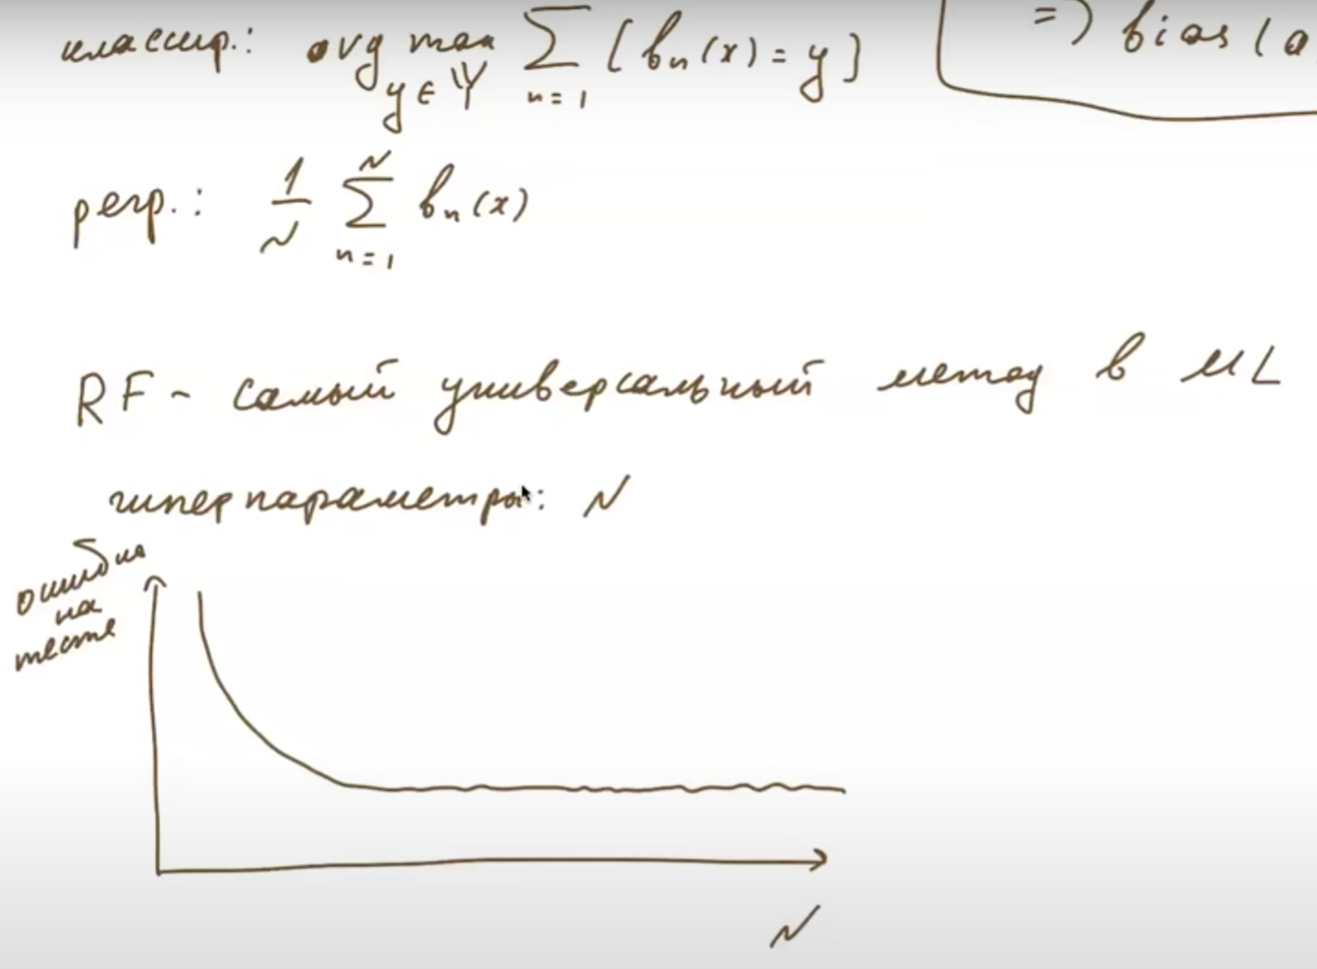 классиф.: arg max y∈Y ∑ n=1 [bₙ(x) = y]
=> bias(a
регр.: 1/N ∑ n=1 N bₙ(x)
RF - самый универсальный метод в ML
гиперпараметры: N
ошибка
на
тесте
N